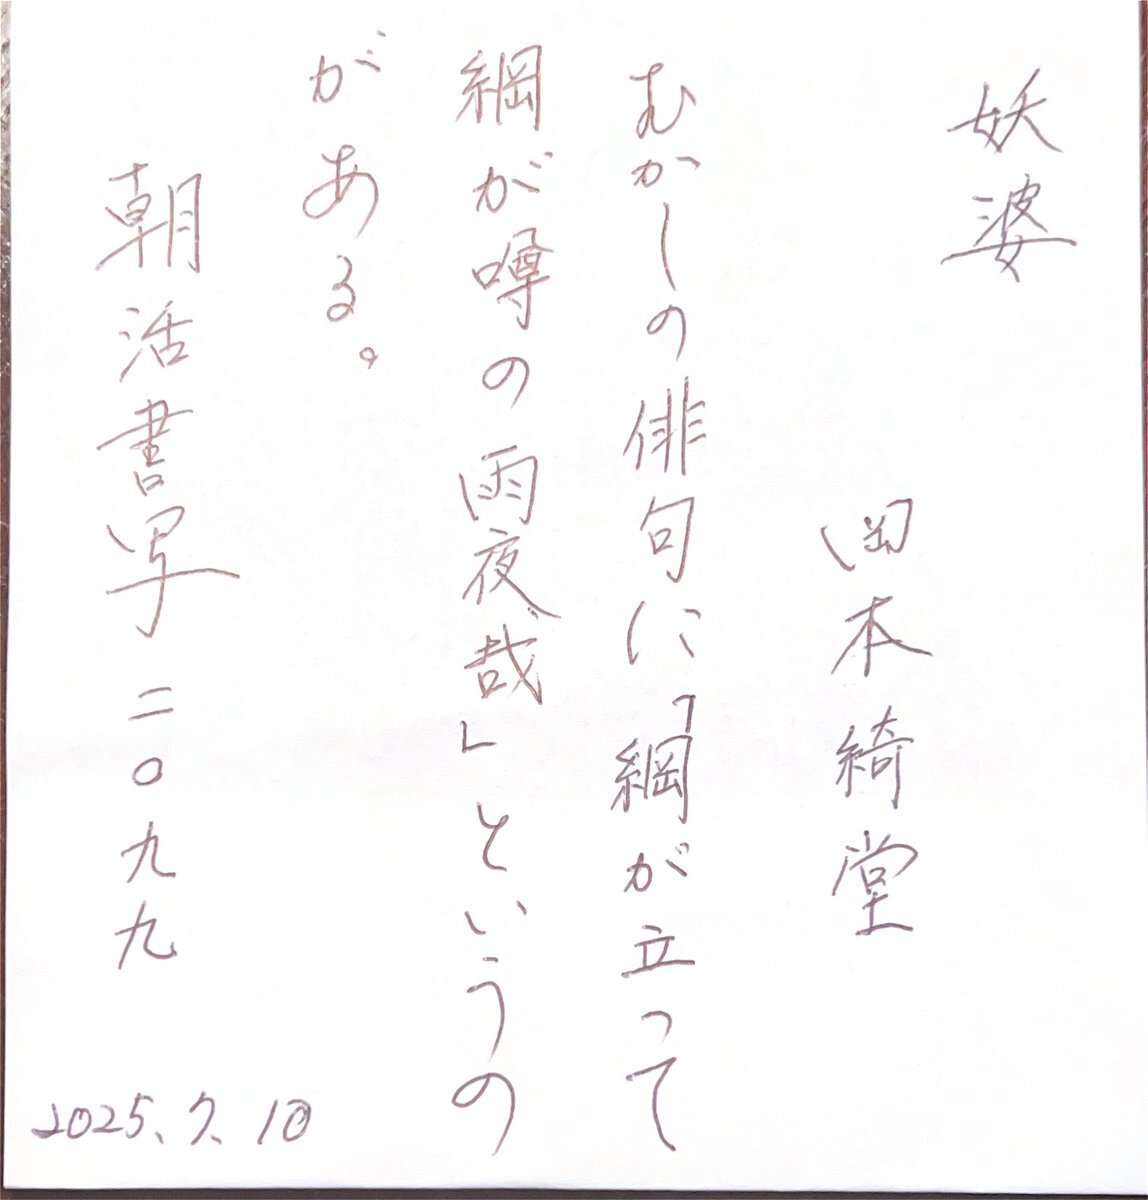 妖婆
岡本綺堂
むかしの俳句に「綱が立って
綱が噂の雨夜哉」というの
がある。
朝活書写二〇九九
2025.7.10